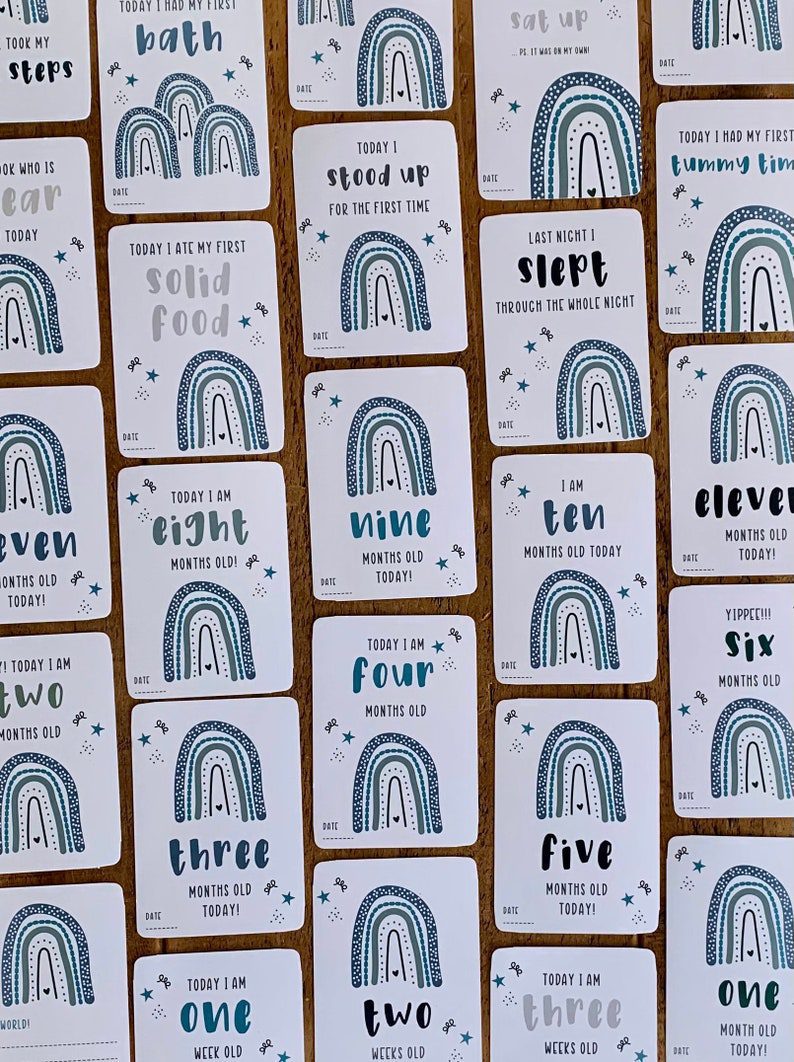 TOOK MY
steps
TODAY I HAD MY FIRST
bath
DATE
DATE
sat up
... PS. IT WAS ON MY OWN!
DATE
DATE
WHO IS
TODAY
TODAY I ATE MY FIRST
solid
food
DATE
TODAY I
stood up
FOR THE FIRST TIME
DATE
LAST NIGHT I
slept
THROUGH THE WHOLE NIGHT
DATE
TODAY I HAD MY FIRST
tummy
DATE
MONTHS OLD
TODAY!
TODAY I AM
eight
MONTHS OLD!
DATE
nine
MONTHS OLD
TODAY!
DATE
I AM
ten
MONTHS OLD TODAY
DATE
eleven
MONTHS OLD
TODAY!
DATE
TODAY I AM
two
MONTHS OLD
three
MONTHS OLD
TODAY!
DATE
TODAY I AM
four
MONTHS OLD
DATE
five
MONTHS OLD
TODAY!
DATE
YIPPEE!!!
six
MONTHS OLD
DATE
WORLD!
TODAY I AM
one
WEEK OLD
two
WEEKS OLD
TODAY I AM
three
WEEKS OLD
one
MONTH OLD
TODAY!
DATE